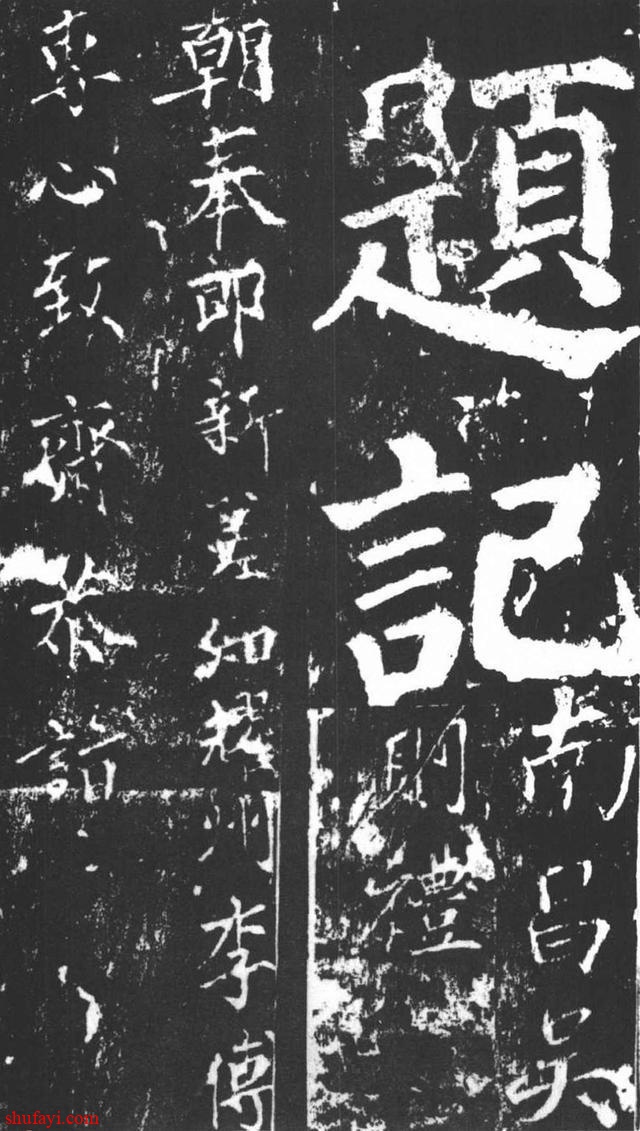 題記
南昌吳
則禮
朝奉郎新差知耀州李傅
專心致齋恭詣
shufayi.com